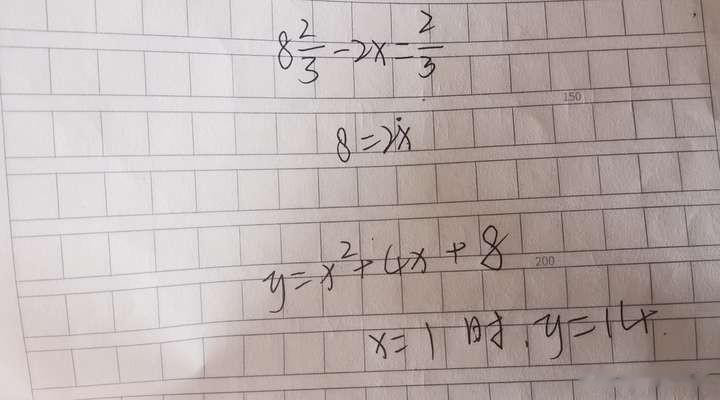 8 2/3 - 2x = 2/3
150
8 = 2x
y = x² + 4x + 8
200
x = 1 时, y = 14